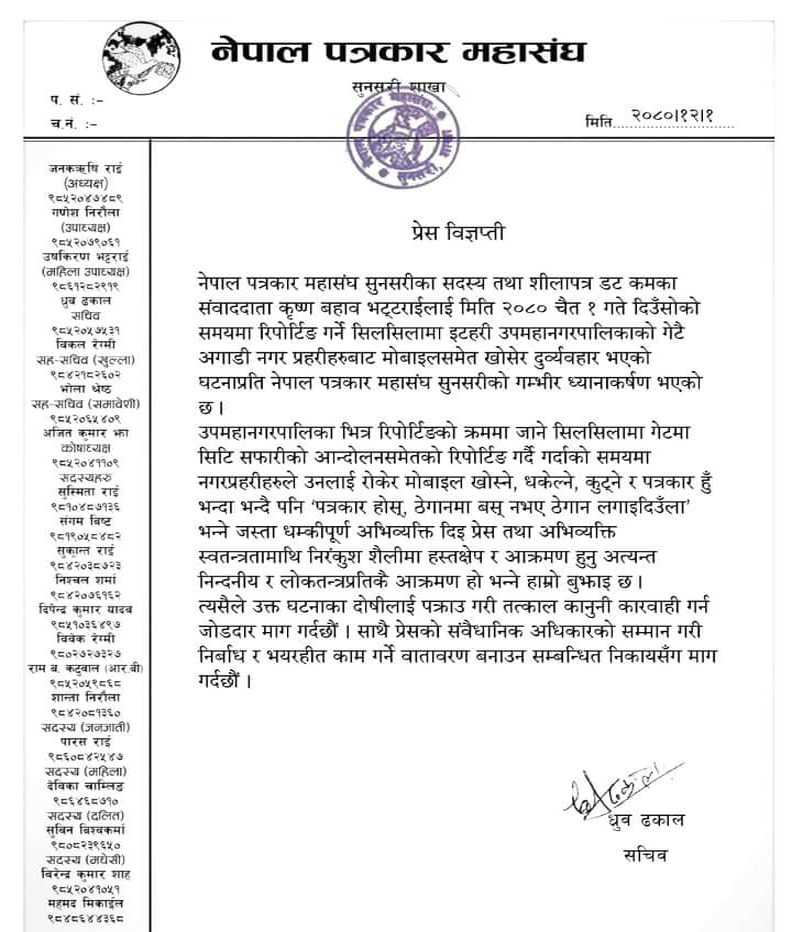 नेपाल पत्रकार महासंघ
सुनसरी शाखा
प. सं. :-
च.नं. :-
मिति.................
२०८०।१२।१
नेपाल पत्रकार महासंघ
सुनसरी
जनकऋषि राई
(अध्यक्ष)
९८५२०४७४८९
गणेश निरौला
(उपाध्यक्ष)
९८५२०७९०६१
उषाकिरण भट्टराई
(महिला उपाध्यक्ष)
९८६१२८२९१९
ध्रुव ढकाल
सचिव
९८५२०५७५३१
विकल रेग्मी
सह-सचिव (खुल्ला)
९८४२१८२६०२
भोला श्रेष्ठ
सह-सचिव (समावेशी)
९८५२०६५४०९
अजित कुमार झा
कोषाध्यक्ष
९८५२०४११०९
सदस्यहरु
सुस्मिता राई
९८१०४८७१३६
संगम बिष्ट
९८१९०५८४८२
सुकान्त राई
९८४२०३८७२३
निश्चल शर्मा
९८४२०७६१६२
दिपेन्द्र कुमार यादव
९८५१०३६४९७
विवेक रेग्मी
९८०२७२७३२७
राम ब. कटुवाल (आर.बी)
९८५२०५९८६८
शान्ता निरौला
९८४२०८१३६०
सदस्य (जनजाती)
पारस राई
९८६०८४२५४७
सदस्य (महिला)
देविका चाम्लिङ
९८६४६८७१०
सदस्य (दलित)
सुविन विश्वकर्मा
९८०८२३९६५०
सदस्य (मधेसी)
विरेन्द्र कुमार शाह
९८५२०४१०५१
महमद मिकाईल
९८४८६४४३६८
प्रेस विज्ञप्ती
नेपाल पत्रकार महासंघ सुनसरीका सदस्य तथा शीलापत्र डट कमका
संवाददाता कृष्ण बहाव भट्टराईलाई मिति २०८० चैत १ गते दिउँसोको
समयमा रिपोर्टिङ गर्ने सिलसिलामा इटहरी उपमहानगरपालिकाको गेटै
अगाडी नगर प्रहरीहरुबाट मोबाइलसमेत खोसेर दुर्व्यवहार भएको
घटनाप्रति नेपाल पत्रकार महासंघ सुनसरीको गम्भीर ध्यानाकर्षण भएको
छ ।
उपमहानगरपालिका भित्र रिपोर्टिङको क्रममा जाने सिलसिलामा गेटमा
सिटि सफारीको आन्दोलनसमेतको रिपोर्टिङ गर्दै गर्दाको समयमा
नगरप्रहरीहरुले उनलाई रोकेर मोबाइल खोस्ने, धकेल्ने, कुट्ने र पत्रकार हुँ
भन्दा भन्दै पनि ‘पत्रकार होस्, ठेगानमा बस् नभए ठेगान लगाइदिउँला’
भन्ने जस्ता धम्कीपूर्ण अभिव्यक्ति दिइ प्रेस तथा अभिव्यक्ति
स्वतन्त्रतामाथि निरंकुश शैलीमा हस्तक्षेप र आक्रमण हुनु अत्यन्त
निन्दनीय र लोकतन्त्रप्रतिकै आक्रमण हो भन्ने हाम्रो बुझाइ छ ।
त्यसैले उक्त घटनाका दोषीलाई पक्राउ गरी तत्काल कानुनी कारवाही गर्न
जोडदार माग गर्दछौं । साथै प्रेसको संवैधानिक अधिकारको सम्मान गरी
निर्बाध र भयरहीत काम गर्ने वातावरण बनाउन सम्बन्धित निकायसँग माग
गर्दछौं ।
ध्रुव ढकाल
सचिव